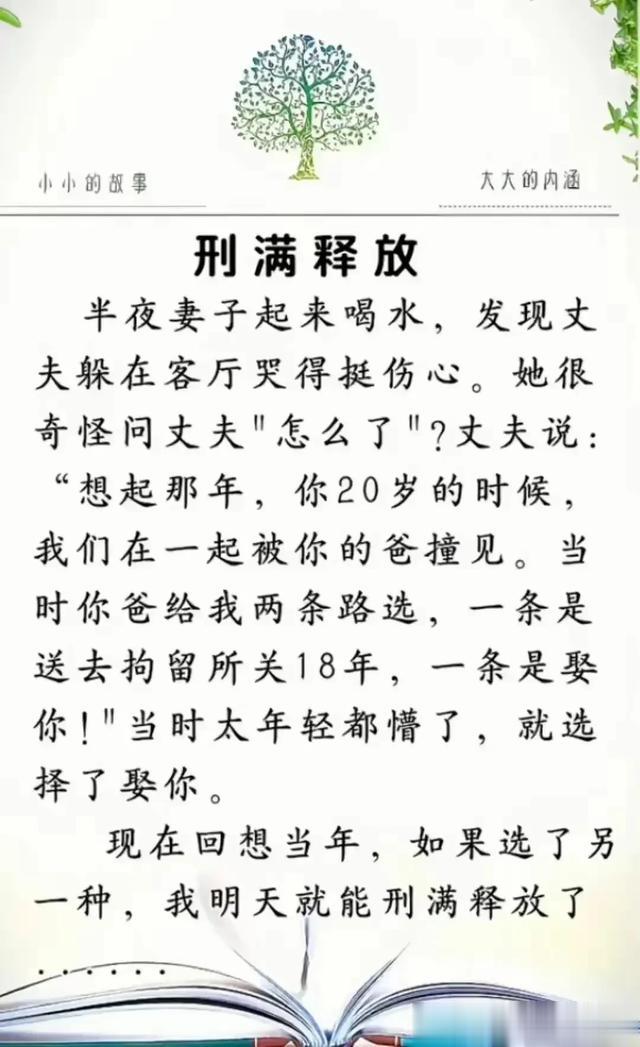 小小的故事
大大的内涵
刑满释放
半夜妻子起来喝水，发现丈
夫躲在客厅哭得挺伤心。她很
奇怪问丈夫"怎么了"?丈夫说：
“想起那年，你20岁的时候，
我们在一起被你的爸撞见。当
时你爸给我两条路选，一条是
送去拘留所关18年，一条是娶
你！"当时太年轻都懵了，就选
择了娶你。
现在回想当年，如果选了另
一种，我明天就能刑满释放了
......